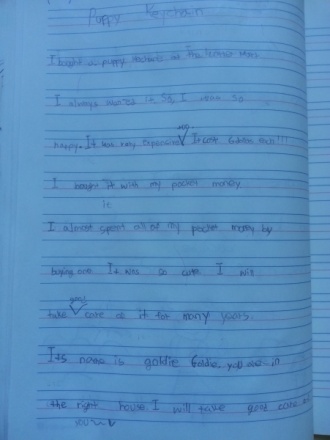 Puppy Keychain
I bought a puppy keychain at the
I always wanted it. So, I was so
happy. It was very expensive too It cost !!!
I bought it with my pocket money
I almost spent all of my pocket money by
buying one It was so cute I will
take good care of it for many years.
Its name is goldie Goldie, you are in
the right house. I will take good care of
you